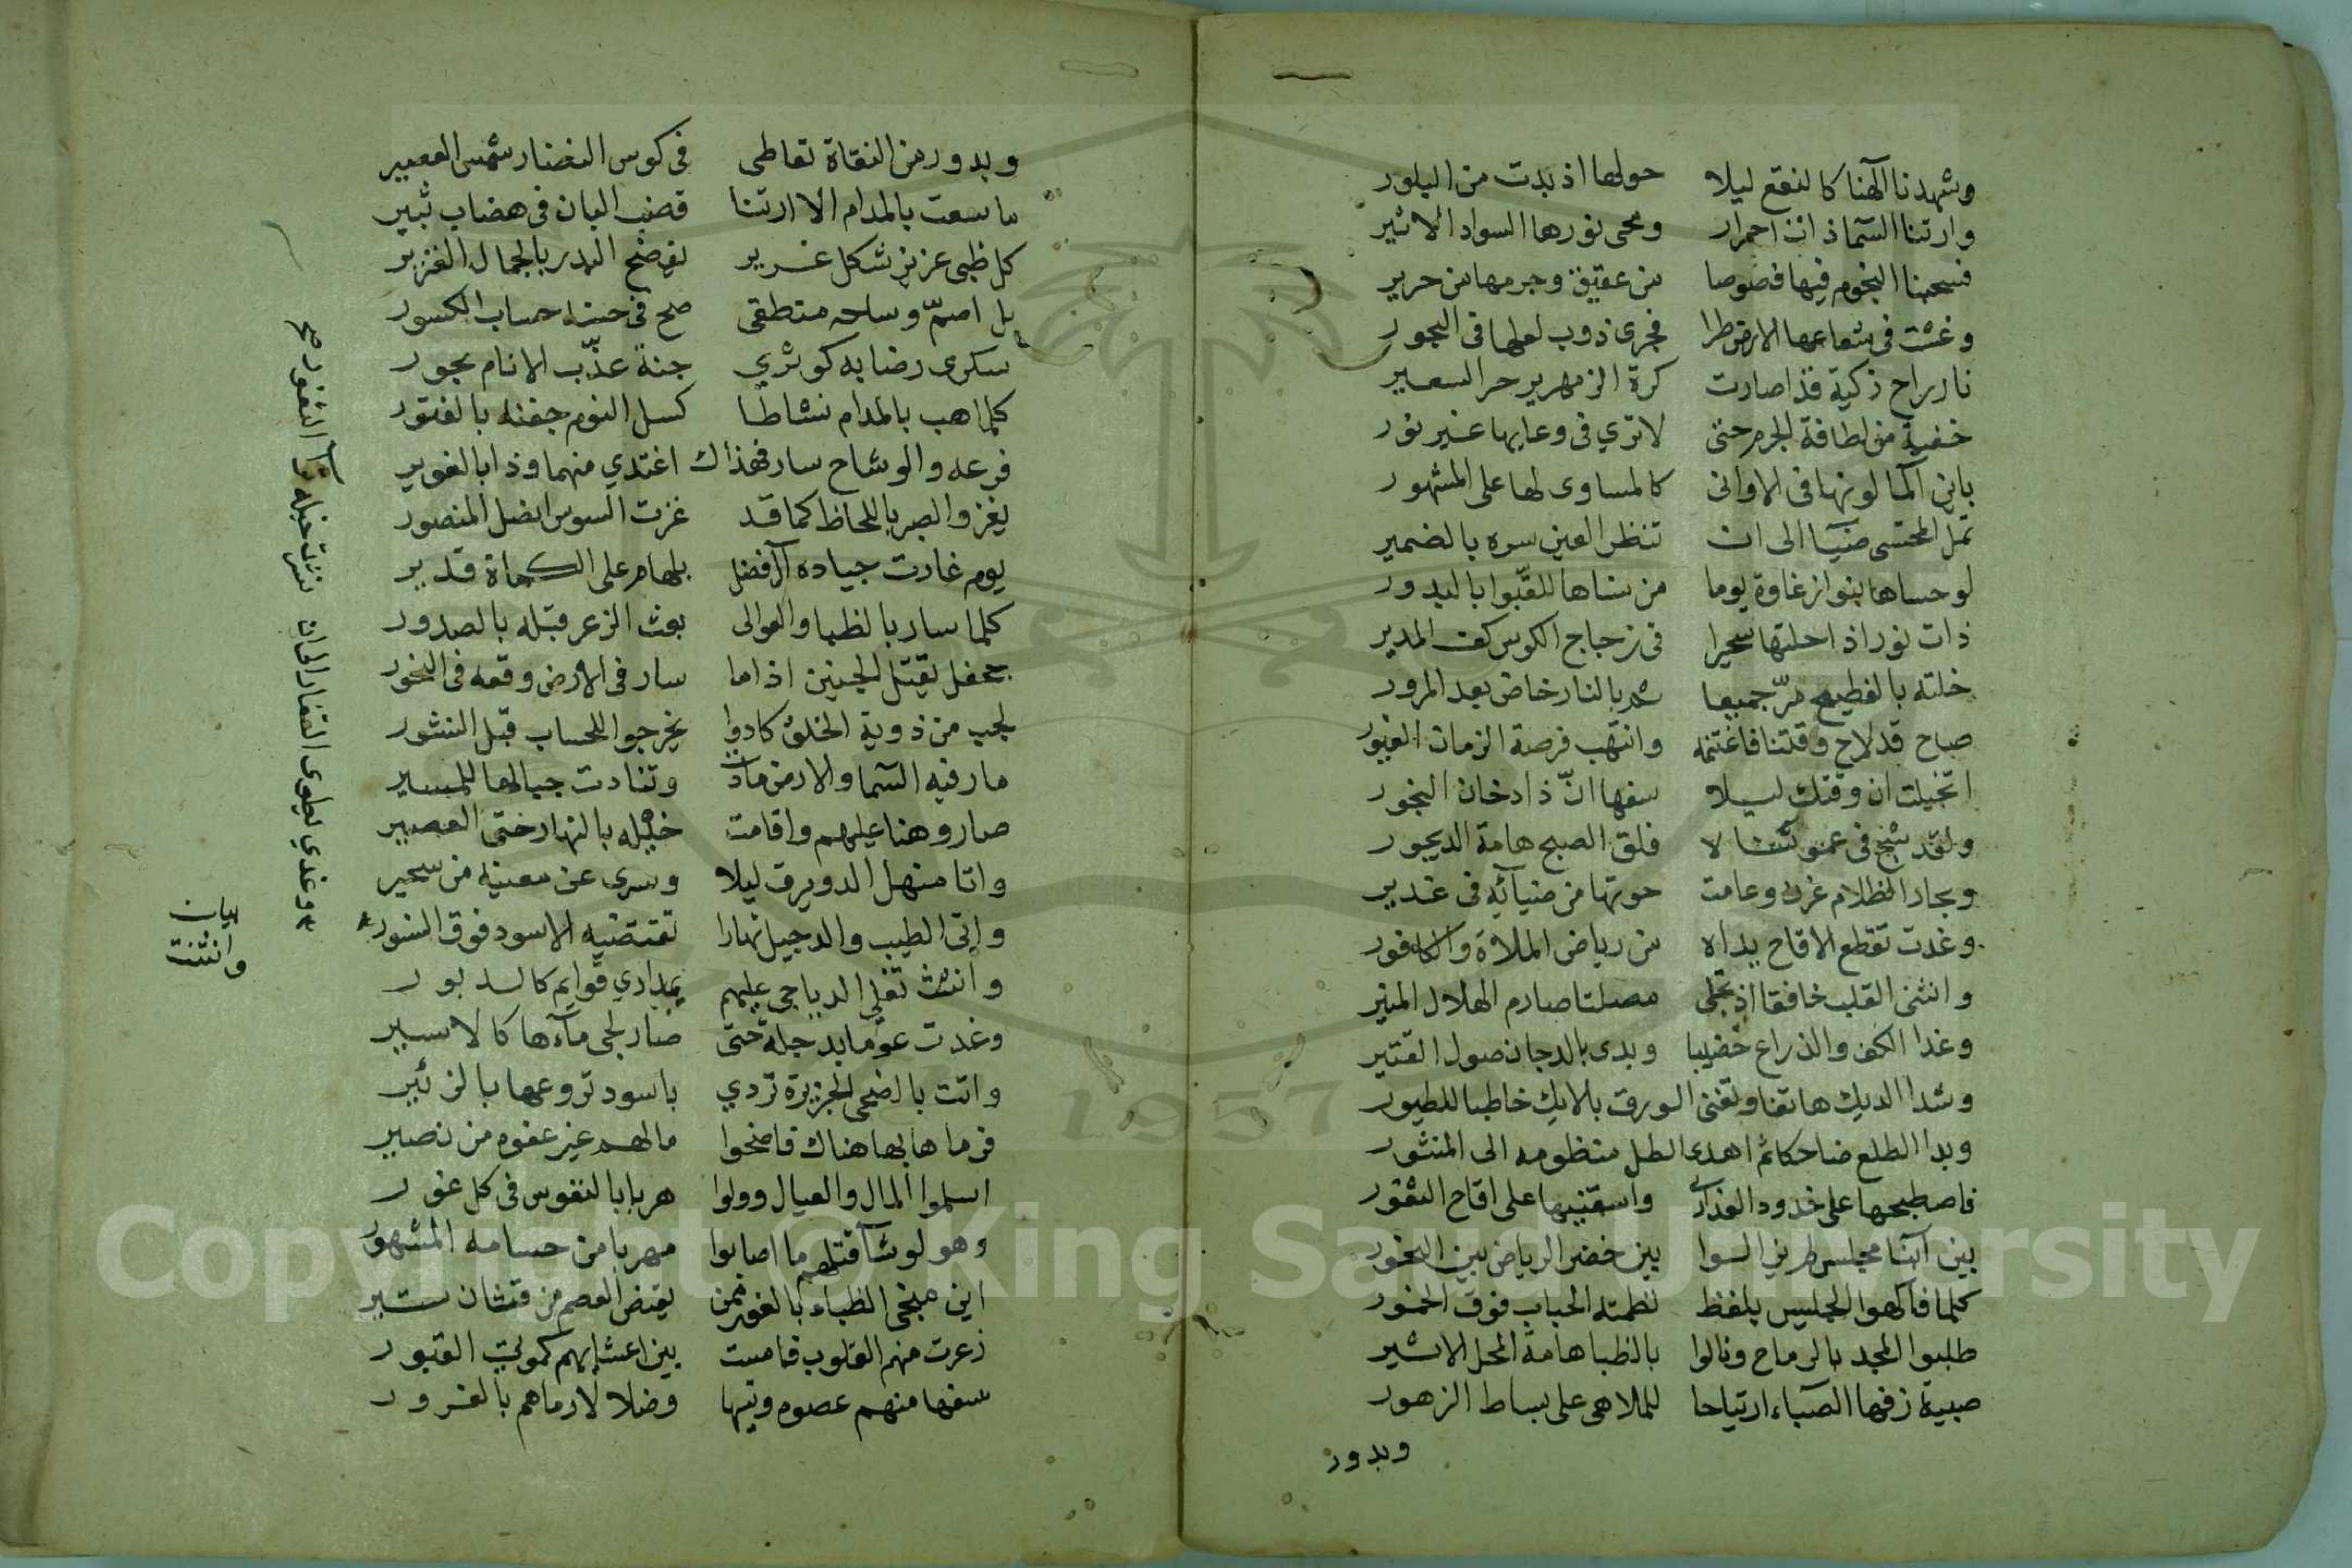 وشهدنا الهنا كالنقع ليلا حولها اذ بدت من البلور
وارتنا السما ذات احمرار ومحى نورها السواد الاثير
فسحبنا النجوم فيها فصوصا من عقيق وجرمها من حرير
وغشت في شعاعها الارض طرا فجرى ذوب لعلها في البحور
نار راح ذكية قد اصارت كرة الزمهرير حر السعير
خفية من لطافة الجرم حتى لا ترى في وعايها غير نور
باين الما لونها في الاواني كالمساوى لها على المشهور
تمل المحتسى ضيا الى ان تنظر العين سره بالضمير
لو حساها بنو ازغاوة يوما من سناها للقبوا بالبدور
ذات نور اذا جلتها سحيرا في زجاج الكوس كف المدير
خلته بالفطيع مر جميعا ثم بالنار خاض بعد المرور
صاح قد لاح وقتنا فاغتنمه وانتهب فرصة الزمان الغيور
اتخيلت ان وقتك ليلا سفها ان ذا دخان البخور
ولقد شج في عمود لا فلق الصبح هامة الديجور
وبحار الظلام غرن وعامت حوتها من ضيائه في غدير
وغدت تقطع الاقاح يداه من رياض الملاة والكافور
وانثنى القلب خافقا اذ تجلى مصلتا صارم الهلال المنير
وغدا الكف والذراع خضيبا وبدى بالدجان صول القتير
وشدا الديك هاتفا وتغنى الورق بالايك خاطبا للطيور
وبدا الطلع ضاحكا ثم اهدى الطل منظومه الى المنثور
فاصطبحها على خدود العذارى واسقنيها على اقاح الثغور
بين ابنا مجلس بين خضر الرياض بين البخور
كلما فاكهوا الجليس بلفظ نظمته الحباب فوق الخمور
طلبوا المجد بالرماح ونالوا بالظبا هامة المحل الاثير
صبية زفها الصباء ارتياحا للملاهى على بساط الزهور
وبدور
وبدور من النقاة تعاطى في كوس النضار شمس العصير
ما سعت بالمدام الا ارتنا قضب البان في هضاب ثبير
كل ظبى عزيز شكل غرير يفضح البدر بالجمال الغزير
بل اصم وساحه منطقى صح في حسابه حساب الكسور
سكرى رضابه كوثري جنة عذب الانام بجور
كلما هب بالمدام نشاطا كسل النوم جفنه بالفتور
فرعه والوشاح سار فهذاك اغتدي منهما وذا بالغوير
يغزو الصبر باللحاظ كما قد غزت السوس المنصور
يوم غارت جياده ال فضل بلهام على الكماة قدير
كلما سار بالظبا والعوالى بعث الزعر قبله بالصدور
جحفل يقتل الجنين اذا ما سار في الارض وقعه في النحور
لجب من ذويه الخلق كادوا يخرجوا للحساب قبل النشور
مار فيه السما والارض مادت وتنادت جبالها للمسير
صار وهنا عليهم واقامت خيله بالنهار حتى العصير
واتا منهل الدويرق ليلا وسرى عن معينه من سحير
واتى الطيب والدجيل نهارا تقتضيه الاسود فوق النسور
وانثنت تفلي الدياجى عليهم بمدارى قوايم كالدبور
وغدت عوما بدجلة حتى صار لجى ماءها كالاسير
واتت بالضحى الجزيرة تردي باسود تروعها بالزئير
فرماها بها هناك فاضحوا ما لهم غير عفوه من نصير
اسلموا المال والعيال وولوا هربا بالنفوس في كل غور
وهو لو شا قتلهم ما اصابوا مهربا من حسامه المشهور
اين منجى الظباء بالغور ممن يقنص العصم من قنان ثبير
زعرت منهم القلوب فامست بين اعشائهم كموتى القبور
سفها منهم عصوه وتيها وضلالا رماهم بالغرور
وغدي يطوى القفار لوان نشرت خيله ثرا الثغور صح
بيان
وانثنت